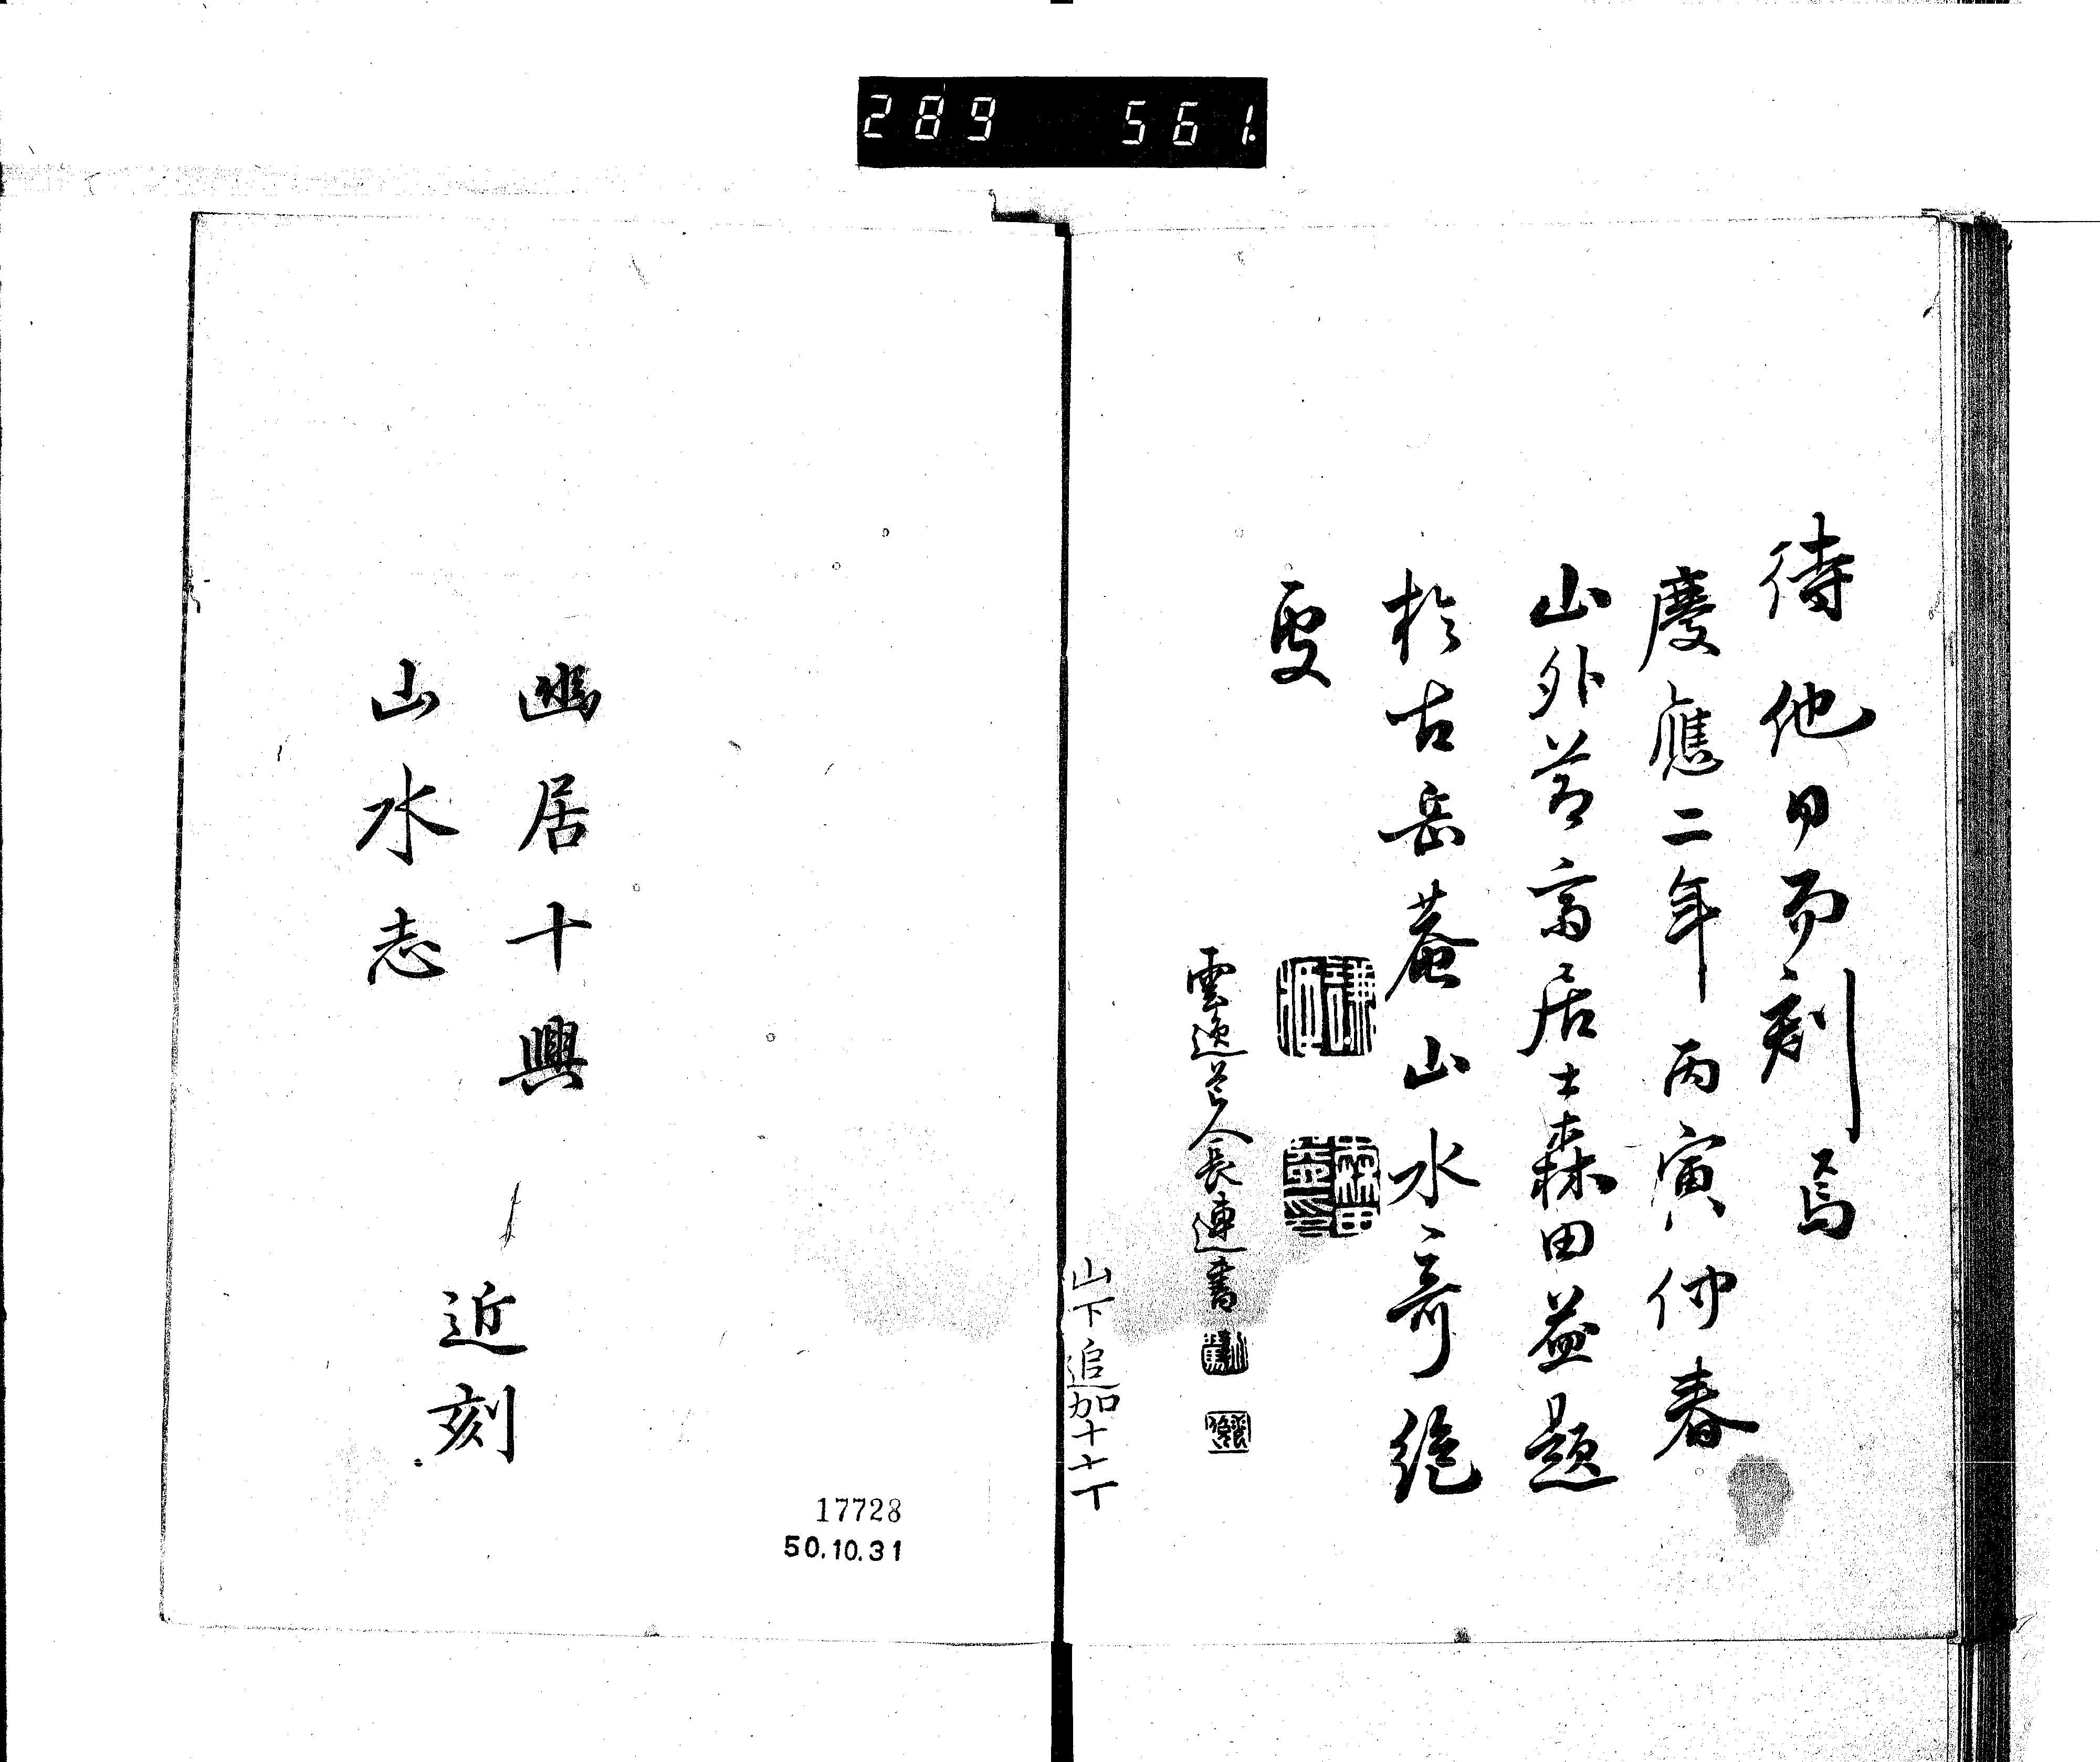 289 561.
待他日而刻焉
慶應二年丙寅仲春
山外節齋居士森田益題
於古岳菴山水奇絶
處
雲逸道人長連書
山下追加十七丁
幽居十興
山水志
近刻
17728
50.10.31